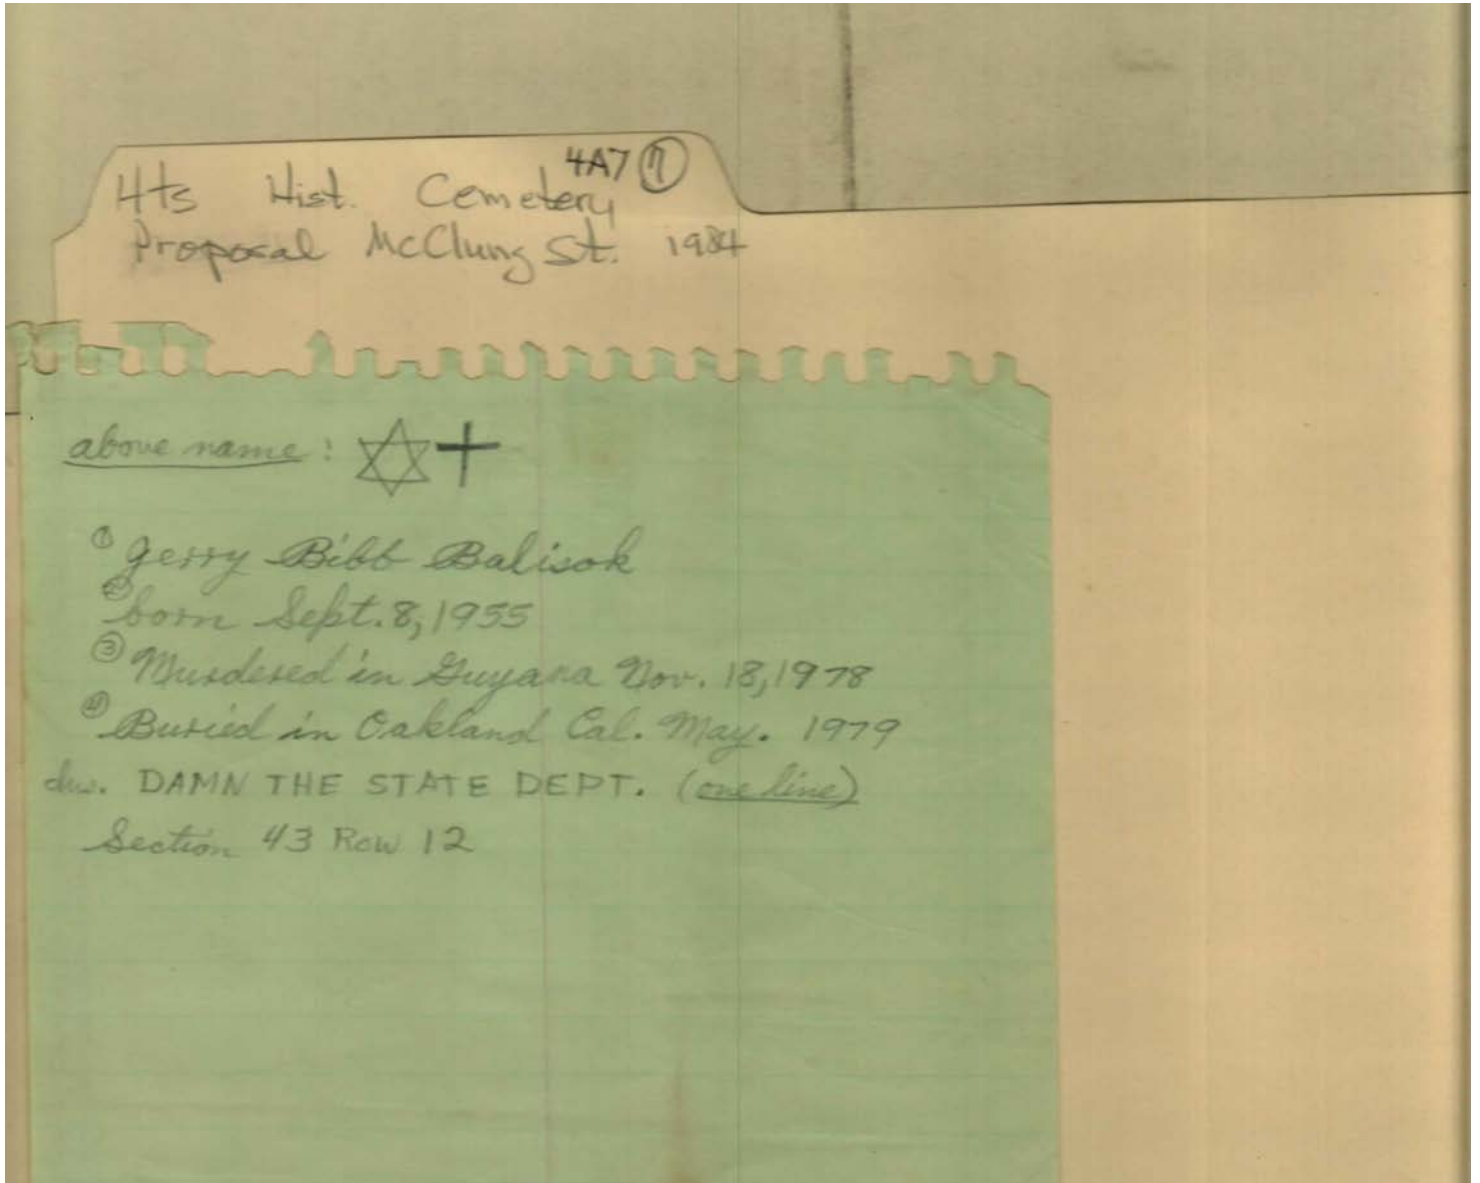 4A7 7
Hts Hist. Cemetery
Proposal McClung St. 1984
above name: ✡+
① Gerry Bibb Balisok
② born Sept. 8, 1955
③ Murdered in Guyana Nov. 18, 1978
④ Buried in Oakland Cal. May. 1979
DAMN THE STATE DEPT. (one line)
Section 43 Row 12